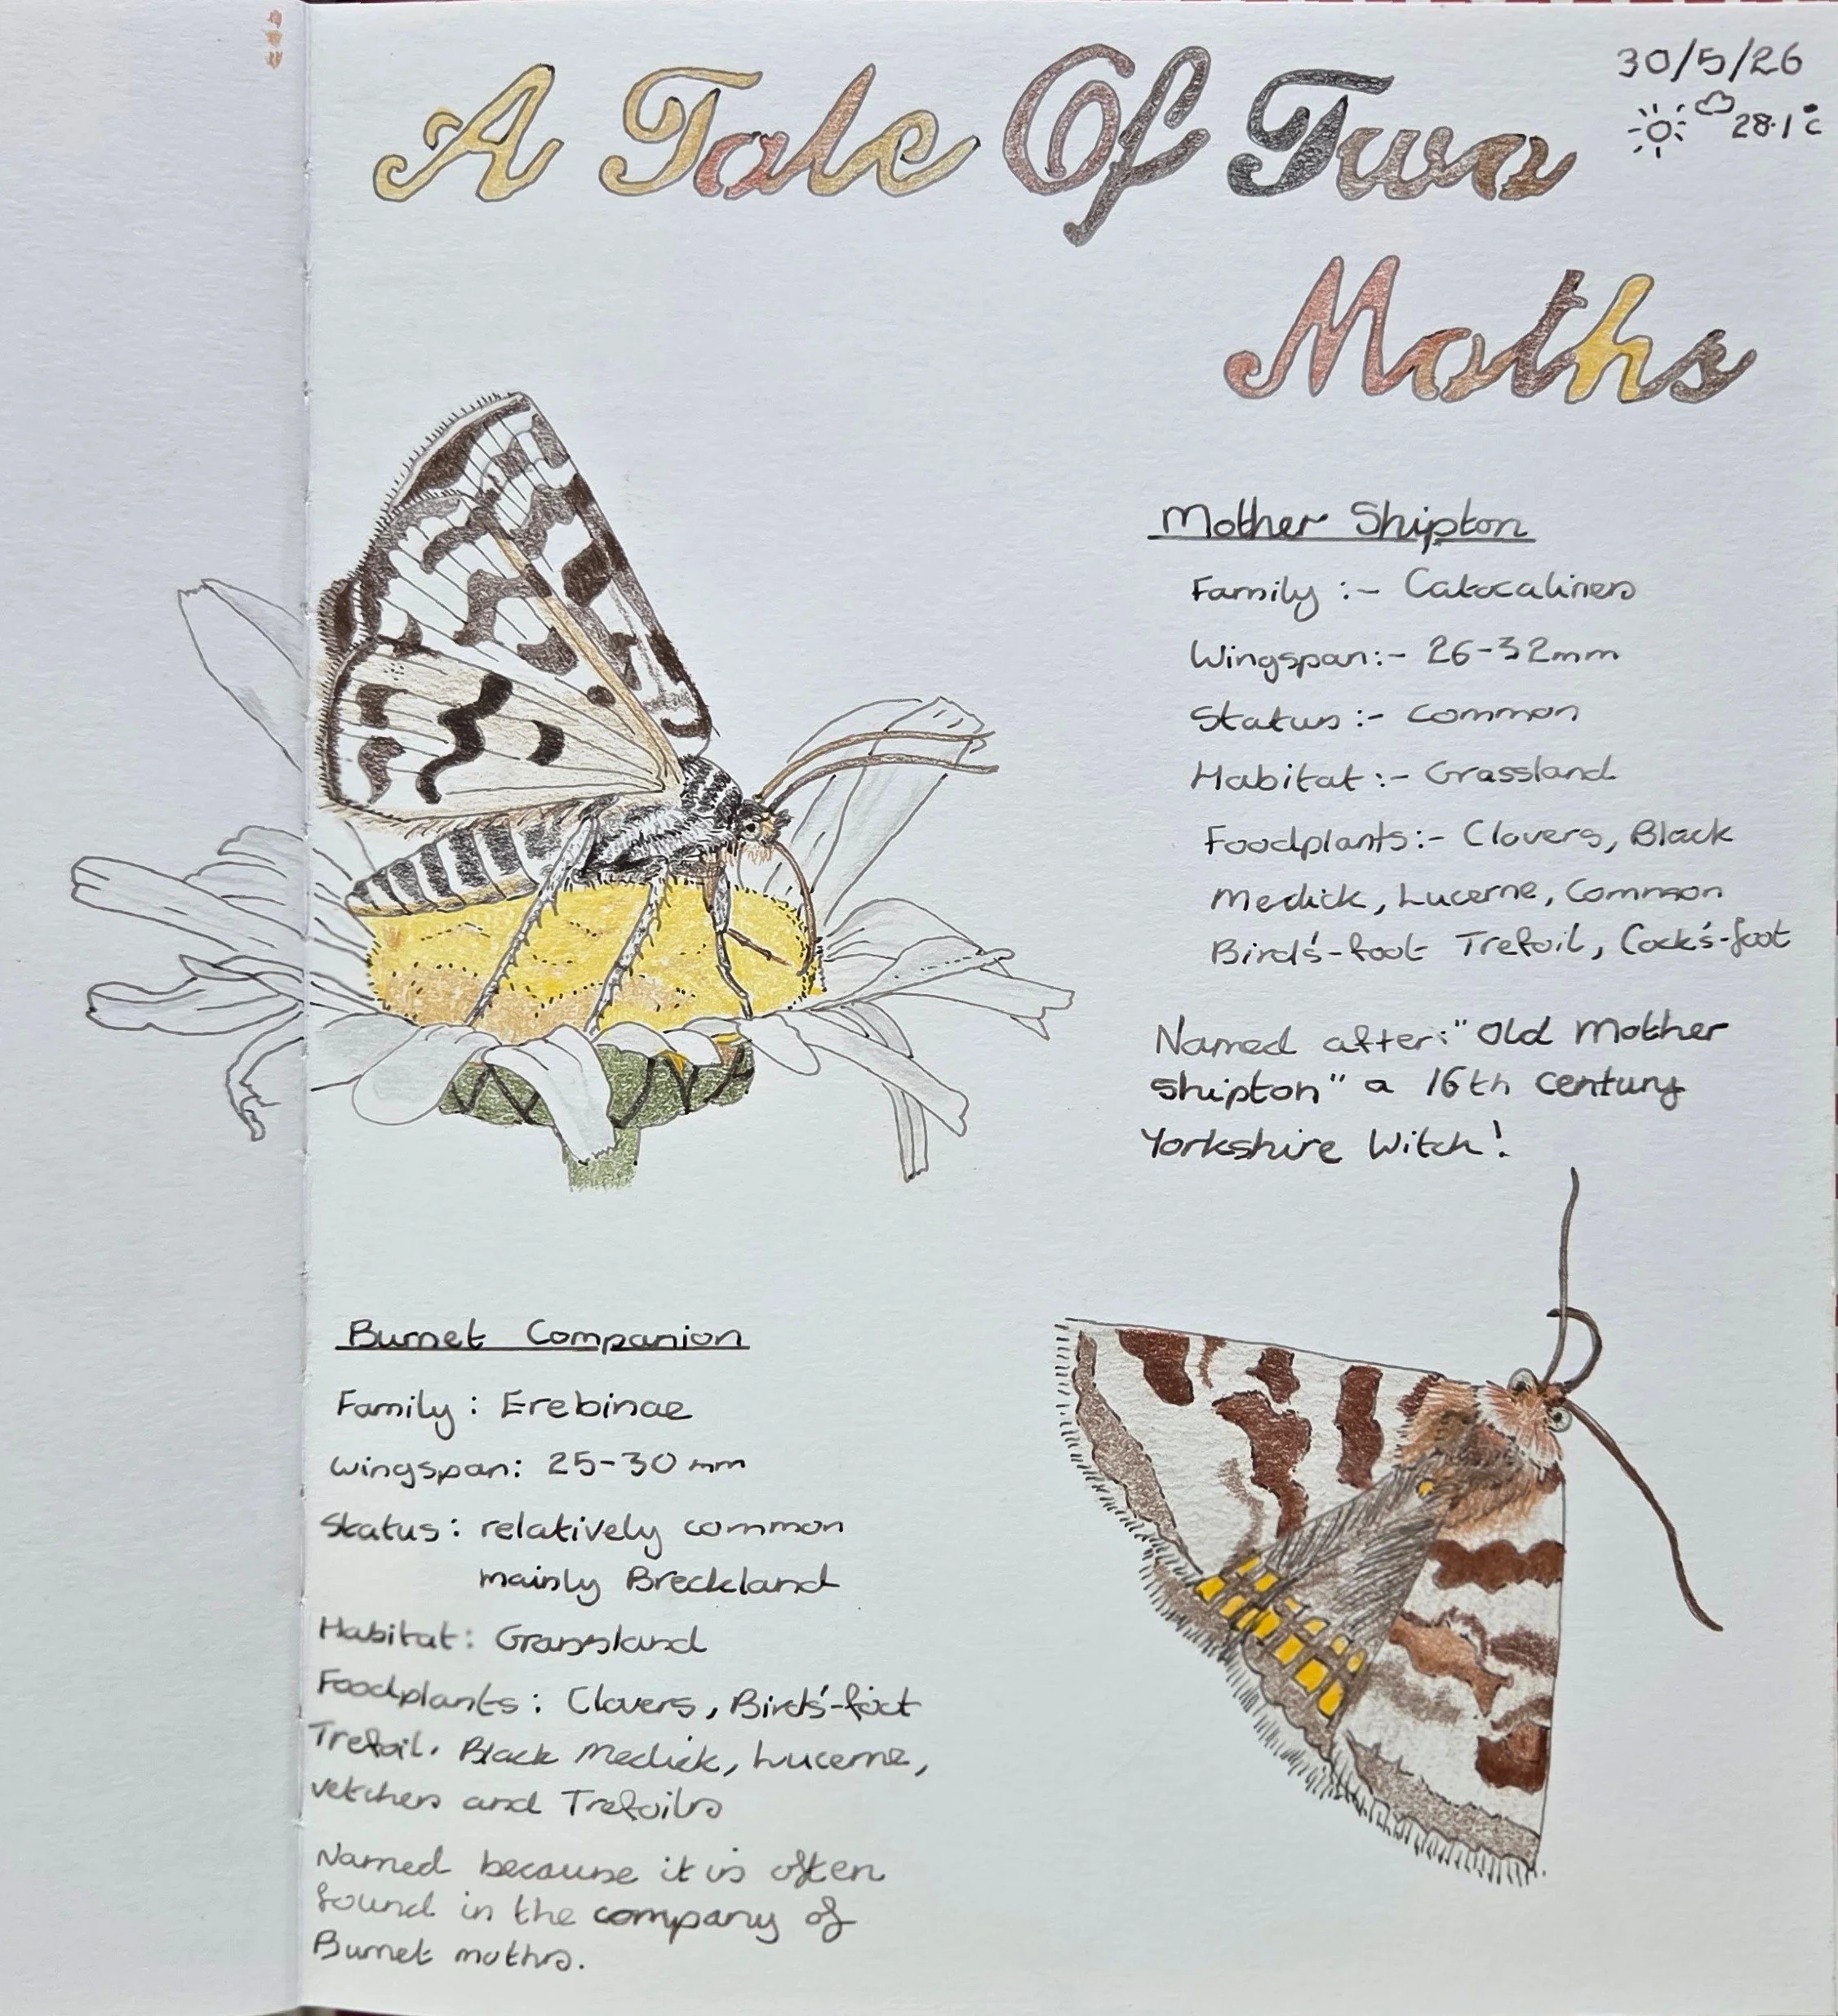 A Tale Of Two
Moths
30/5/26
28.1°c
Mother Shipton
Family :- Catocalines
Wingspan:- 26-32mm
Status :- common
Habitat :- Grassland
Foodplants:- Clovers, Black
Medick, Lucerne, Common
Bird's-foot Trefoil, Cock's-foot
Named after: "Old Mother
Shipton" a 16th Century
Yorkshire Witch!
Burnet Companion
Family : Erebinae
Wingspan: 25-30mm
Status : relatively common
mainly Breckland
Habitat : Grassland
Foodplants : Clovers, Bird's-foot
Trefoil. Black Medick, Lucerne,
vetches and Trefoils
Named because it is often
found in the company of
Burnet moths.